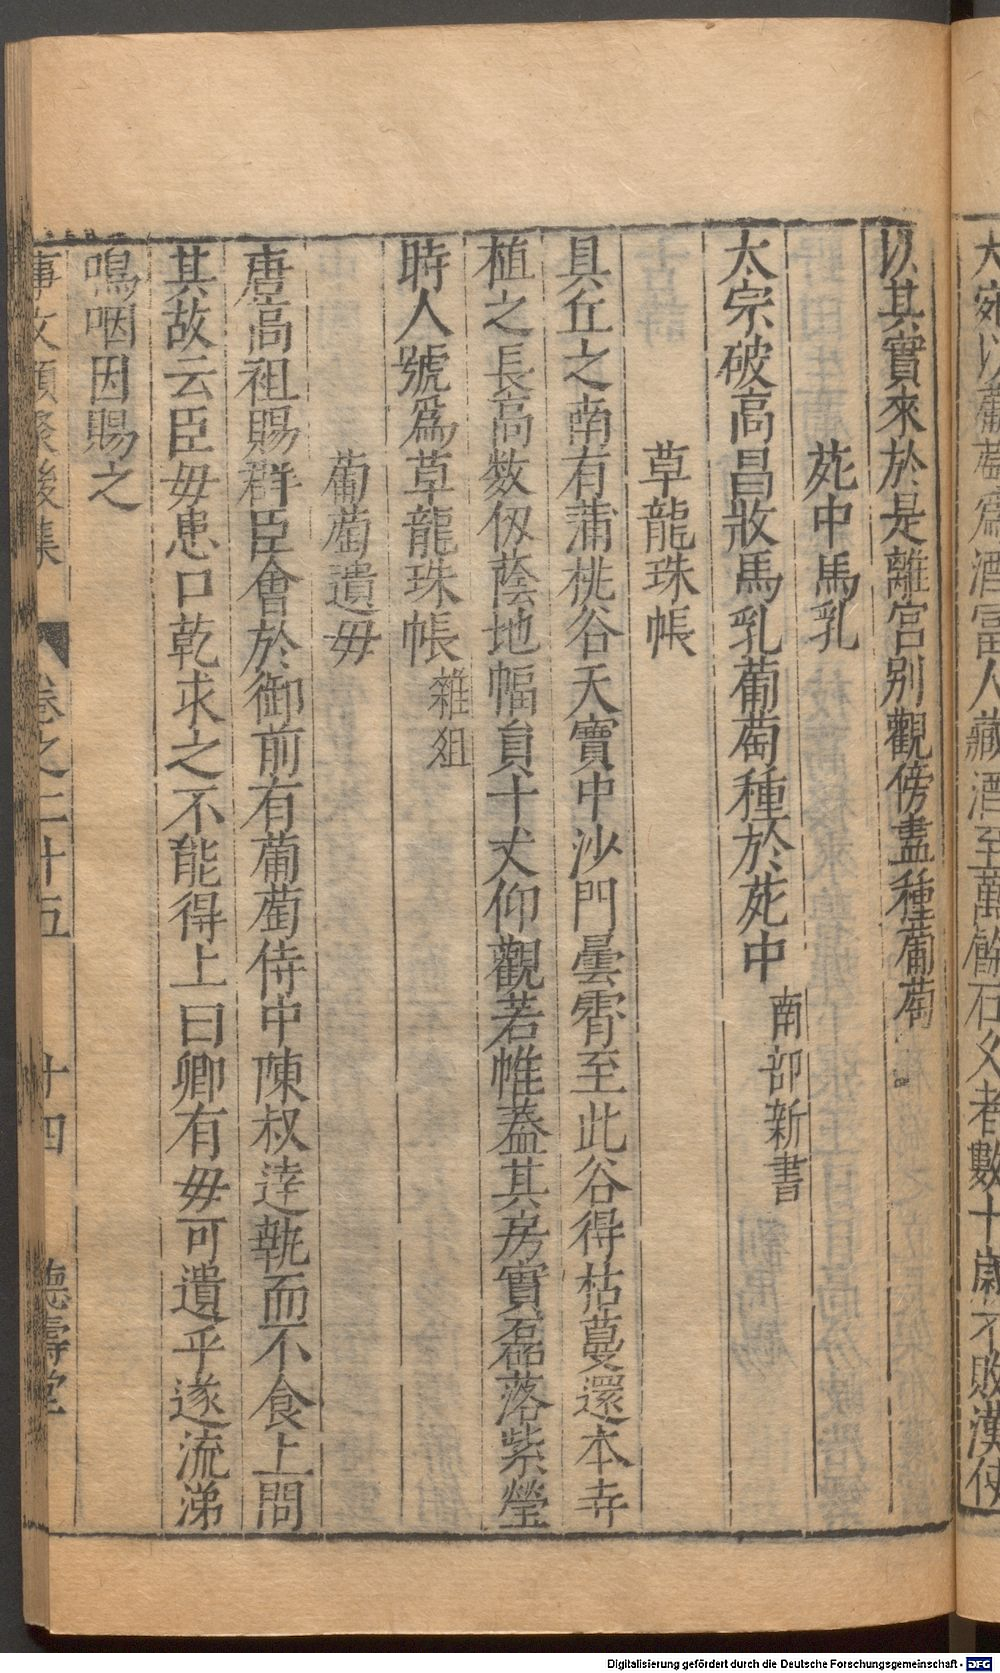 大宛以葡萄爲酒富人藏酒至萬餘石久者數十歲不敗漢使
以其實來於是離宮别觀傍盡種葡萄
苑中馬乳
太宗破高昌收馬乳葡萄種於苑中 南部新書
草龍珠帳
具丘之南有蒲桃谷天寶中沙門曇霄至此谷得枯蔓還本寺
植之長高数仭蔭地幅員十丈仰觀若帷蓋其房實磊落紫瑩
時人號爲草龍珠帳 雜俎
葡萄遺毋
唐高祖賜群臣會於御前有葡萄侍中陳叔逹執而不食上問
其故云臣毋患口乾求之不能得上曰卿有毋可遺乎遂流涕
嗚咽因賜之
事文類聚後集 卷之二十五 十四 德壽堂
Digitalisierung gefördert durch die Deutsche Forschungsgemeinschaft - DFG